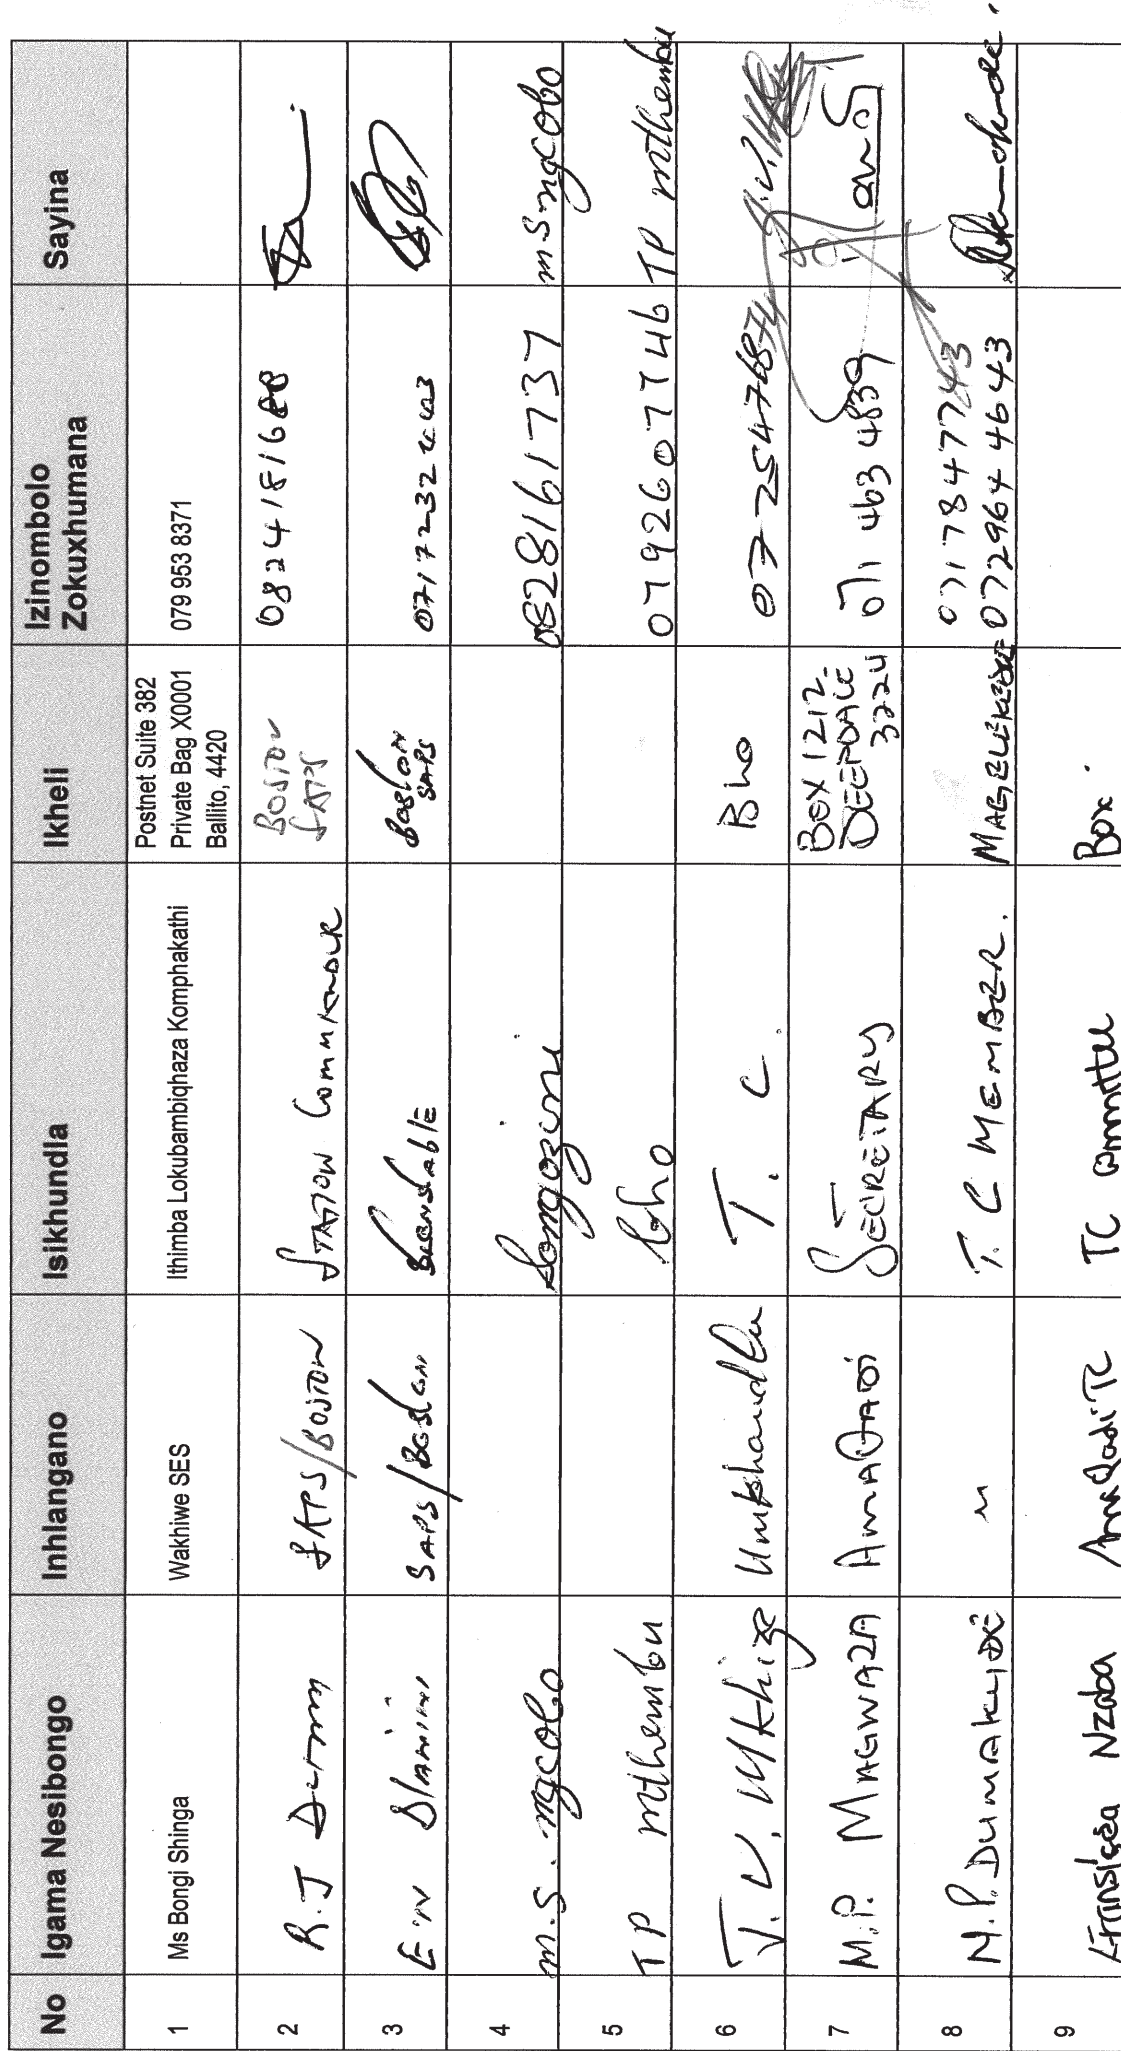 No Igama Nesibongo Inhlangano Isikhundla Ikheli Izinombolo Zokuxhumana Sayina
1 Ms Bongi Shinga Wakhiwe SES Ithimba Lokubambiqhaza Komphakathi Postnet Suite 382
Private Bag X0001
Ballito, 4420
079 953 8371
2 R.J SAPS/BOSTON STATION COMMANDER BOSTON
SAPS
3 E.N Dlamini SAPS/Boston Constable Boston
SAPS
4 m.s. mgcobo Songozini 0828161737 msmgcobo
5 TP mthembu Ibho 0792607746 TP mthembu
6 J.V. Mkhize Umkhandlu T. C. Bho 0725474687
7 M.P. MAGWAZA AMAQADI SECRETARY BOX 1212
DEEPDALE
3224
071 463 4839
8 M.P. DUMAKUDE " T. C MEMBER. 0717847743
0729644643
9 Nzaba AmaQadi TC TC committee Box.